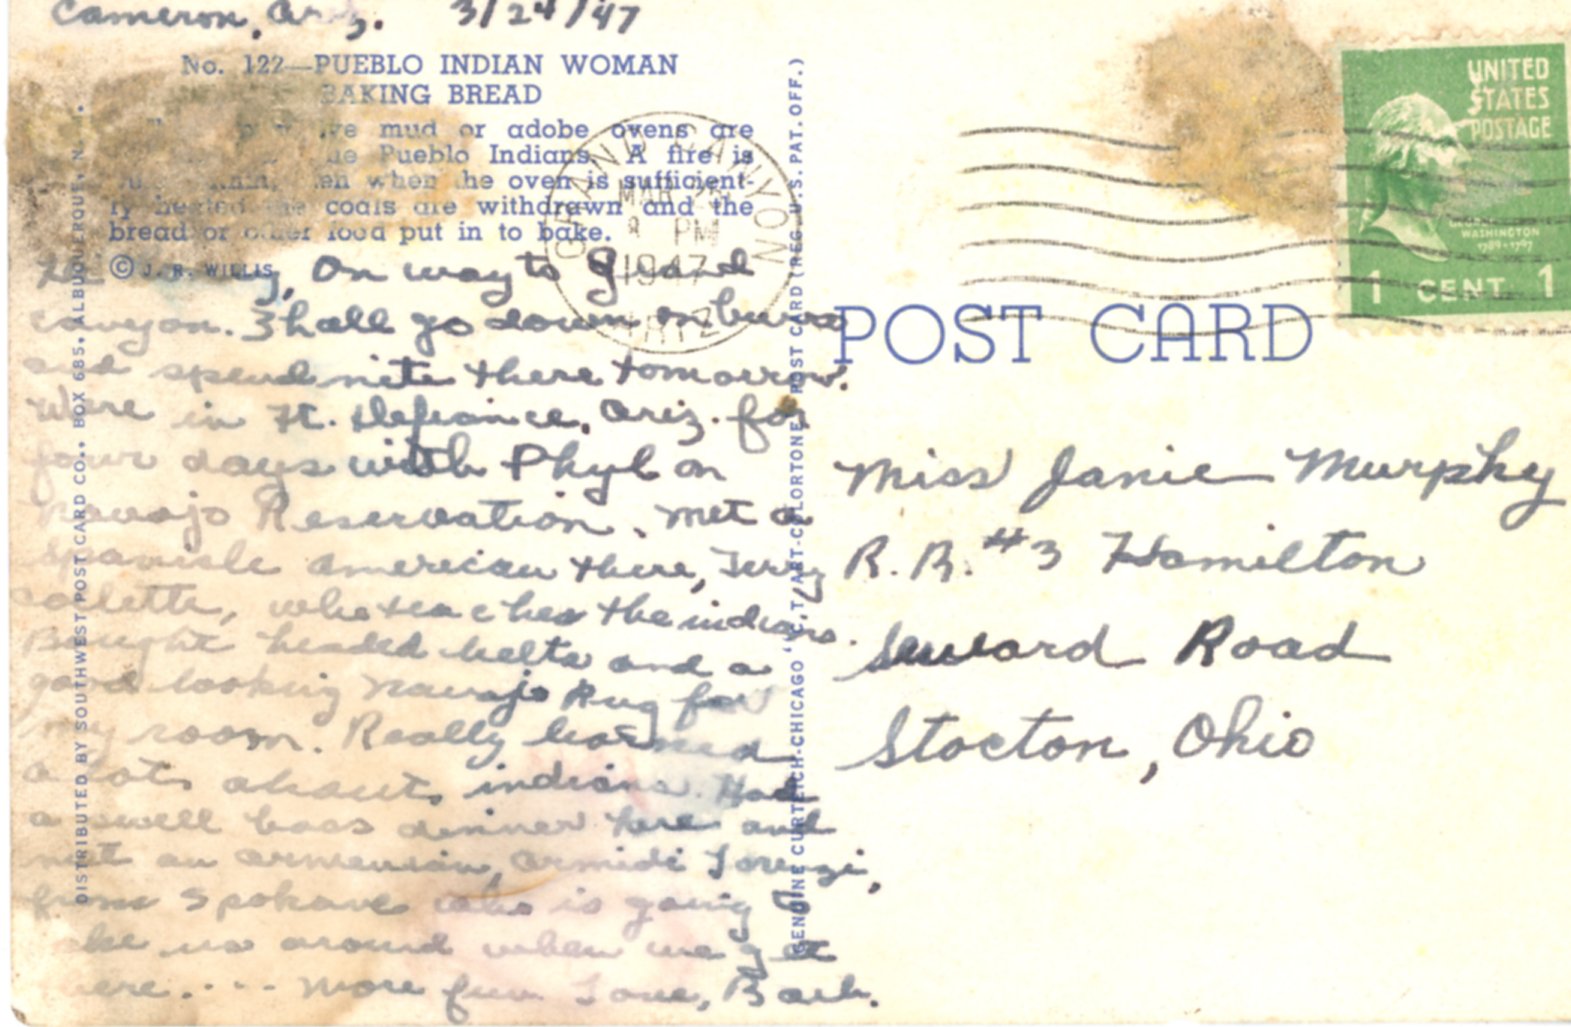 Cameron, Ariz. 3/24/47
No. 122—PUEBLO INDIAN WOMAN
BAKING BREAD
mud or adobe ovens are
Pueblo Indians. A fire is
when the oven is sufficient-
ly heated the coals are withdrawn and the
bread or other food put in to bake.
© J. R. WILLIS
On way to Grand
Canyon. Shall go down on burro
and spend nite there tomorrow.
Were in Ft. Defiance, Ariz. for
four days with Phyl on
Navajo Reservation. Met a
Spanish American there, Terry
who teaches the indians.
Bought beaded belts and a
good looking Navajo Rug for
my room. Really learned
a lot about indians. Had
a swell bass dinner here and
met an armenian,
from Spokane who is going to
take us around when we get
there.... more fun Love, Barb.
DISTRIBUTED BY SOUTHWEST POST CARD CO., BOX 685, ALBUQUERQUE, N.
GENUINE CURTEICH-CHICAGO "C.T. ART-COLORTONE" POST CARD (REG. U.S. PAT. OFF.)
GRAND CANYON
MAR 25
8 PM
1947
ARIZ
UNITED
STATES
POSTAGE
GEORGE
WASHINGTON
1789-1797
1 CENT 1
POST CARD
Miss Janie Murphy
R.R. #3 Hamilton
Seward Road
Stocton, Ohio